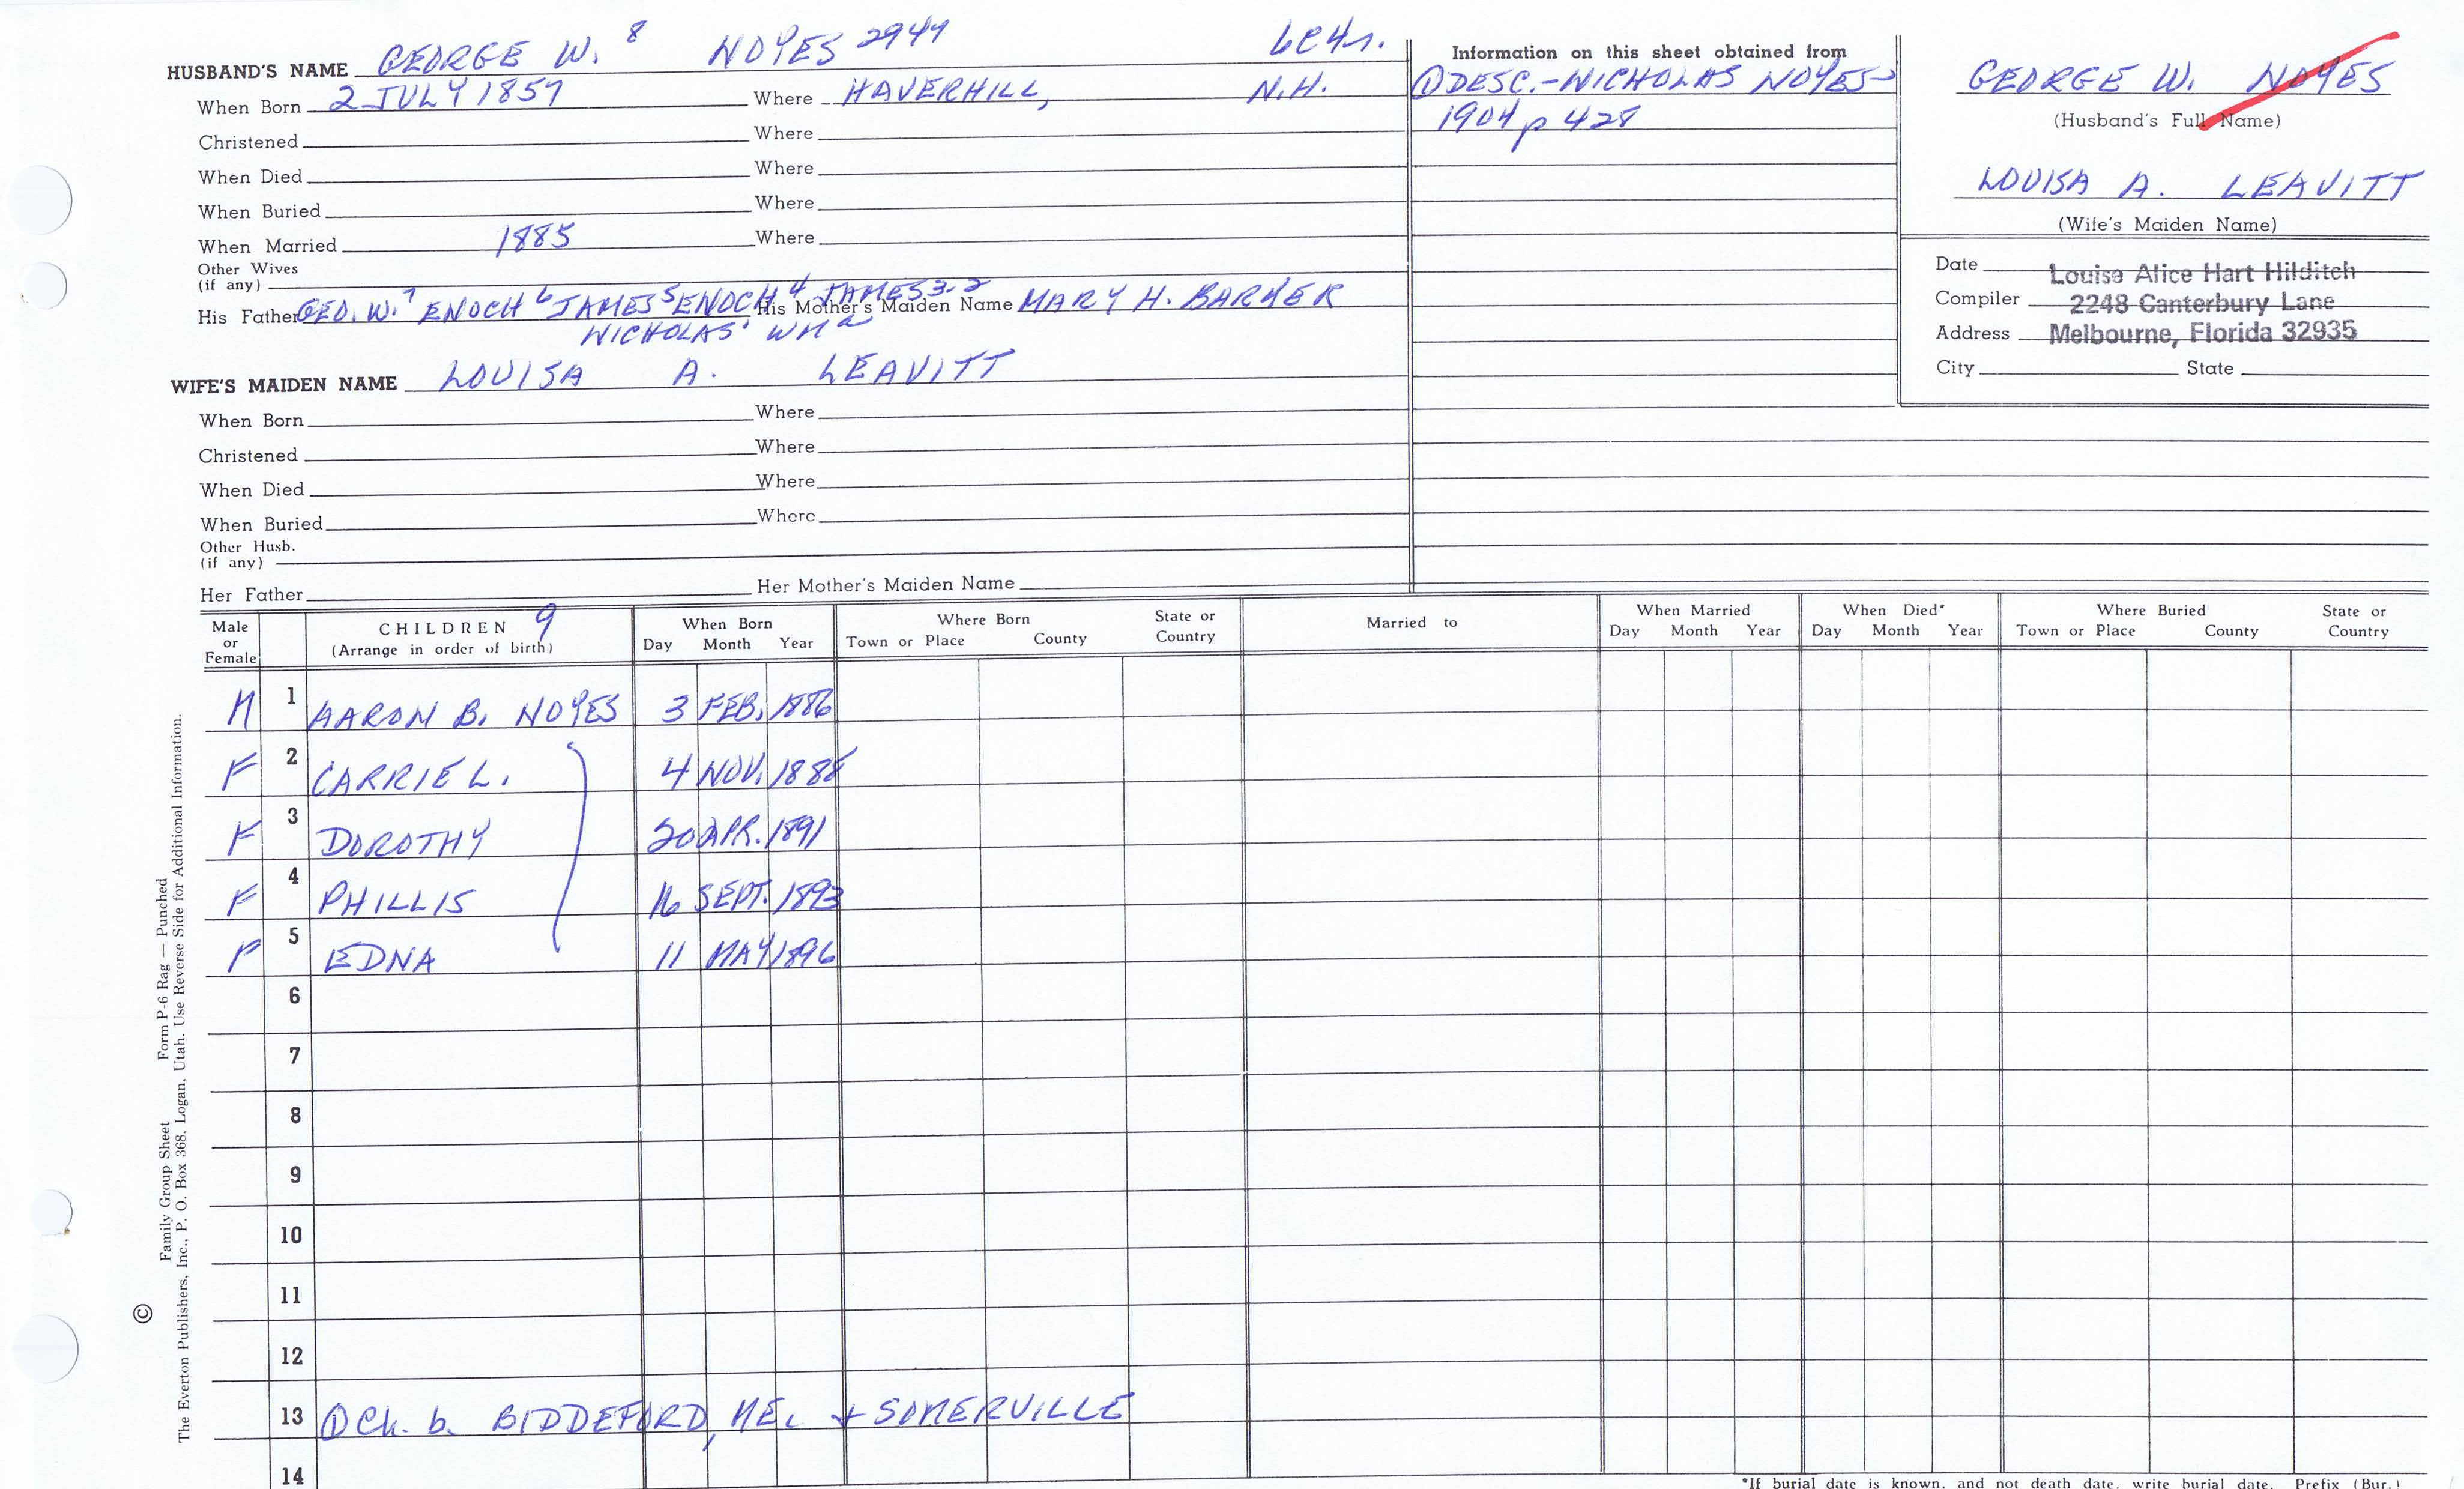 HUSBAND'S NAME GEORGE W. 8 NOYES 2944
When Born 2 JULY 1857 Where HAVERHILL, N.H.
Christened Where
When Died Where
When Buried Where
When Married 1885 Where
Other Wives
(if any)
His Father GEO. W.7 ENOCH 6 JAMES 5 ENOCH 4 JAMES 3-2 His Mother's Maiden Name MARY H. BARKER
NICHOLAS 1 WM a
WIFE'S MAIDEN NAME LOUISA A. LEAVITT
When Born Where
Christened Where
When Died Where
When Buried Where
Other Husb.
(if any)
Her Father Her Mother's Maiden Name
Information on this sheet obtained from
① DESC.-NICHOLAS NOYES-
1904 p 428
GEORGE W. NOYES
(Husband's Full Name)
LOUISA A. LEAVITT
(Wife's Maiden Name)
Date Louise Alice Hart Hilditch
Compiler 2248 Canterbury Lane
Address Melbourne, Florida 32935
City State
Male or Female CHILDREN 9 (Arrange in order of birth) When Born Day Month Year Where Born Town or Place County State or Country Married to When Married Day Month Year When Died* Day Month Year Where Buried Town or Place County State or Country
M 1 AARON B. NOYES 3 FEB. 1886
F 2 CARRIE L. 4 NOV. 1888
F 3 DOROTHY 20 APR. 1891
F 4 PHILLIS 16 SEPT. 1893
F 5 EDNA 11 MAY 1896
6
7
8
9
10
11
12
13 ① Ch. b. BIDDEFORD, ME. + SOMERVILLE
14
*If burial date is known, and not death date, write burial date. Prefix (Bur.)
© Family Group Sheet Form P-6 Rag — Punched
The Everton Publishers, Inc., P. O. Box 368, Logan, Utah. Use Reverse Side for Additional Information.